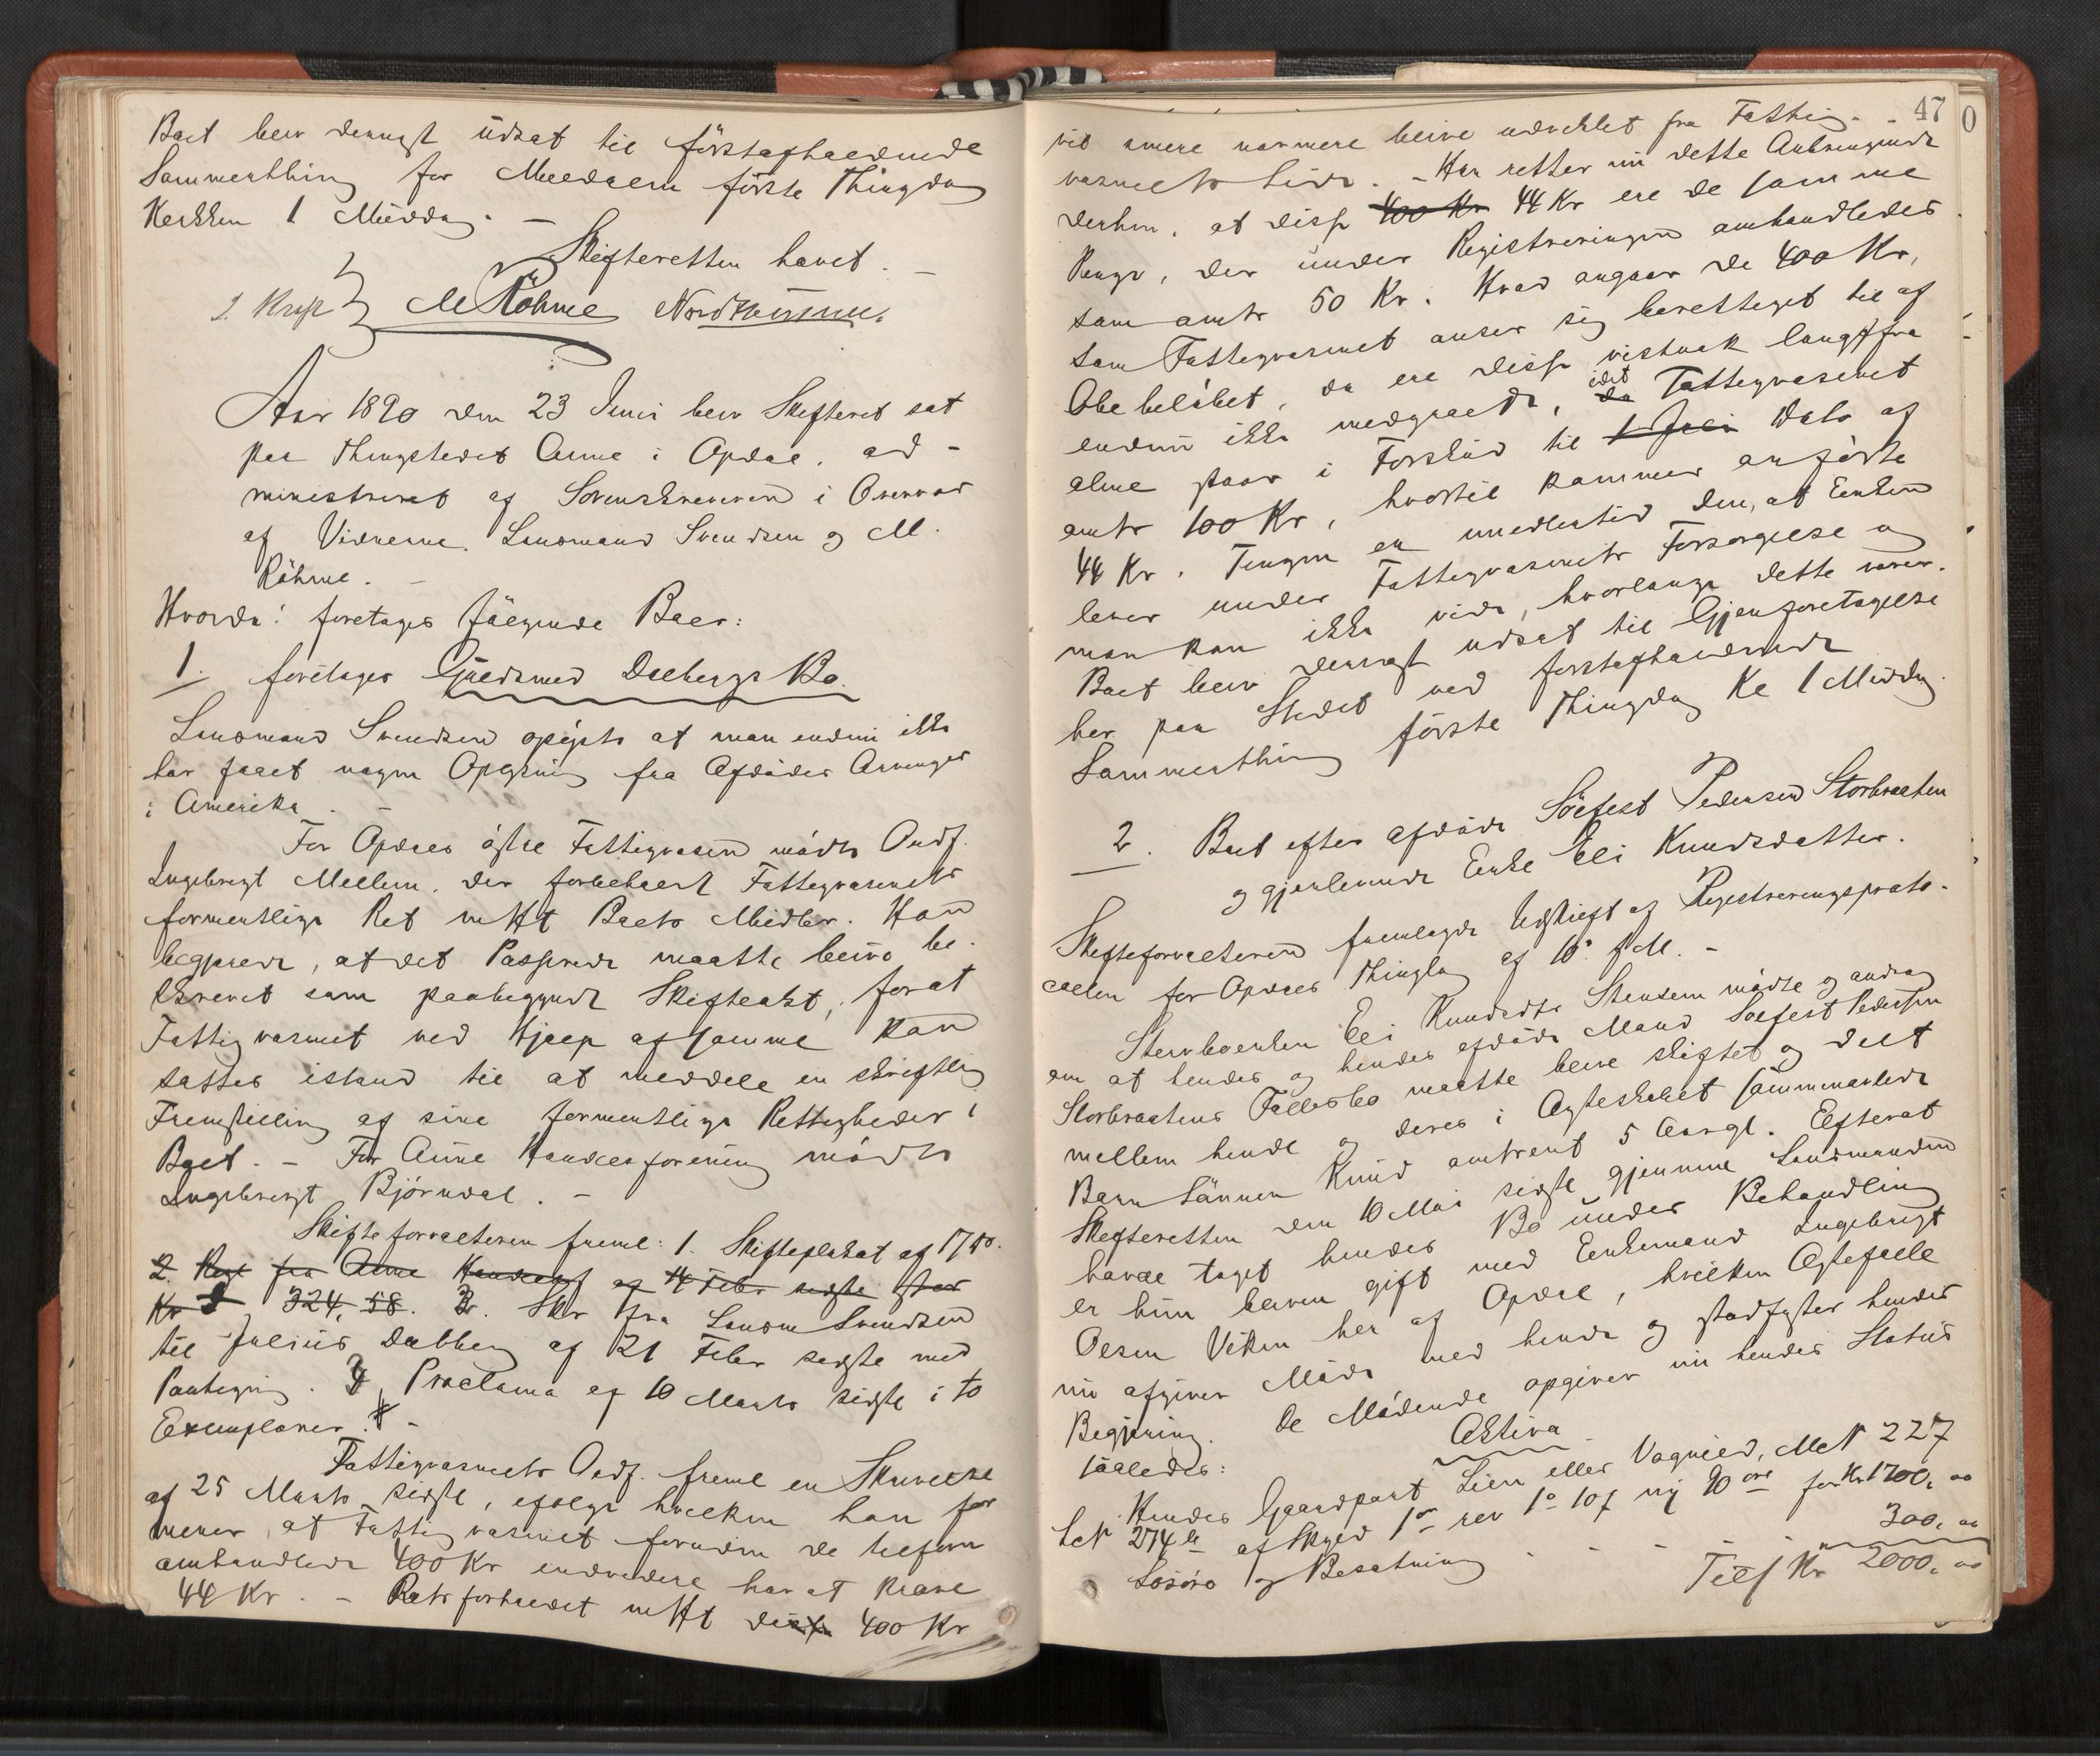 Boet blev dernæst üdsat til förstafholdende
Sommerthing for Meldalen förste Thingdag
Klokken 1 Middag. —
Skifteretten hævet. —
M Röhme
Aar 1890 den 23 Juni blev Skifteret sat
paa Thingstedet Aune i Opdal, ad-
ministreret af Sorenskriveren i Overvær
af Vidnerne Lensmand Svendsen og M.
Röhme. —
Hvorda: foretages fölgende Boer:
1. foretages Guldsmed Dalbergs Bo.
Lensmand Svendsen oplyste at man endnu ikke
har faaet nogen Oplysning fra Afdödes Arvinger
i Amerika. —
For Opdals östre Fattigvæsen mödte Ordf.
Ingebrigt Mellem, der forbeholdt Fattigvæsenets
formentlige Ret m H t Boets Midler. Han
begjærede, at det Passerede maatte blive be-
skrevet som paabegyndt Skifteakt, forat
Fattigvæsenet ved Hjælp af samme kan
sættes istand til at meddele en skriftlig
Fremstilling af sine formentlige Rettigheder i
Boet. — For Aune Handelsforening mödte
Ingebrigt Björndal. —
Skifteforvalteren freml: 1. Skifteplakat af 17
2. Regn fra Aune Handelsf af 14 Febr sidste stor
Kr 324, 58. Skr fra Lensm Svendsen
til Julius Dalberg af 21 Febr sidste med
Paategning. 3, Proclama af 10 Marts sidste i to
Exemplarer. —
Fattigvæsenets Ordf. freml en Skrivelse
af 25 Marts sidste, ifölge hvilken han for
mener, at Fattigvæsenet foruden de tilforn
omhandlede 400 Kr endvidere har at kræve
44 Kr. — Retsforholdet m H t disse 400 Kr
47
vil senere nærmere blive udviklet fra Fattig-
væsenets Side. — Han retter nu dette Anbringende
derhen, at disse 400 Kr 44 Kr ere de samme
Penge, der under Registreringen omhandledes
som omtr 50 Kr. Hvad angaar de 400 Kr,
som Fattigvæsenet anser sig berettiget til af
Obebelöbet, da ere disse vistnok langtfra
endnu ikke medgaaede, da idet Fattigvæsenet
alene staar i Forskud til 1 Juli Dato af
omtr 100 Kr, hvortil kommer anförte
44 Kr. Tingen er imedlertid den, at Enken
lever under Fattigvæsenets Forsorgelse og
man kan ikke vide, hvorlænge dette varer.
Boet blev dernæst udsat til Gjenforetagelse
her paa Stedet ved forstafholdende
Sommerthing förste Thingdag Kl 1 Middag.
2. Boet efter afdöde Söefest Pedersen Storbraaten
og gjenlevende Enke Eli Knudsdatter.
Skifteforvalteren fremlagde Udskrift af Registreringsproto-
collen for Opdals Thinglag af 10. f M. —
Stervboenken Eli Knudsdtr Stensem mödte og androg
om at hendes og hendes afdöde Mand Söefest Pedersen
Storbraatens Fællesbo maatte blive skiftet og delt
mellem hende og deres i Ægteskabet sammenavlede
Barn Sönnen Knud omtrent 5 Aar gl. Efterat
Skifteretten den 10 Mai sidste gjennem Lensmanden
havde taget hendes Bo under Behandling
er hun bleven gift med Enkemand Ingebrigt
Olsen Viken her af Opdal, hvilken Ægtefælle
nu afgiver Möde med hende og stadfæster hendes
Begjæring. De Mödende opgiver nu hendes Status
saaledes:
Aktiva
Hendes Gaardpart Lien eller Vognild, M N 227
L N 274 a af Skyld rev 1 10 ny 90 öre for Kr 1700, 00
Lösöre og Besætning - - - 300, 00
Tils Kr 2000, 00